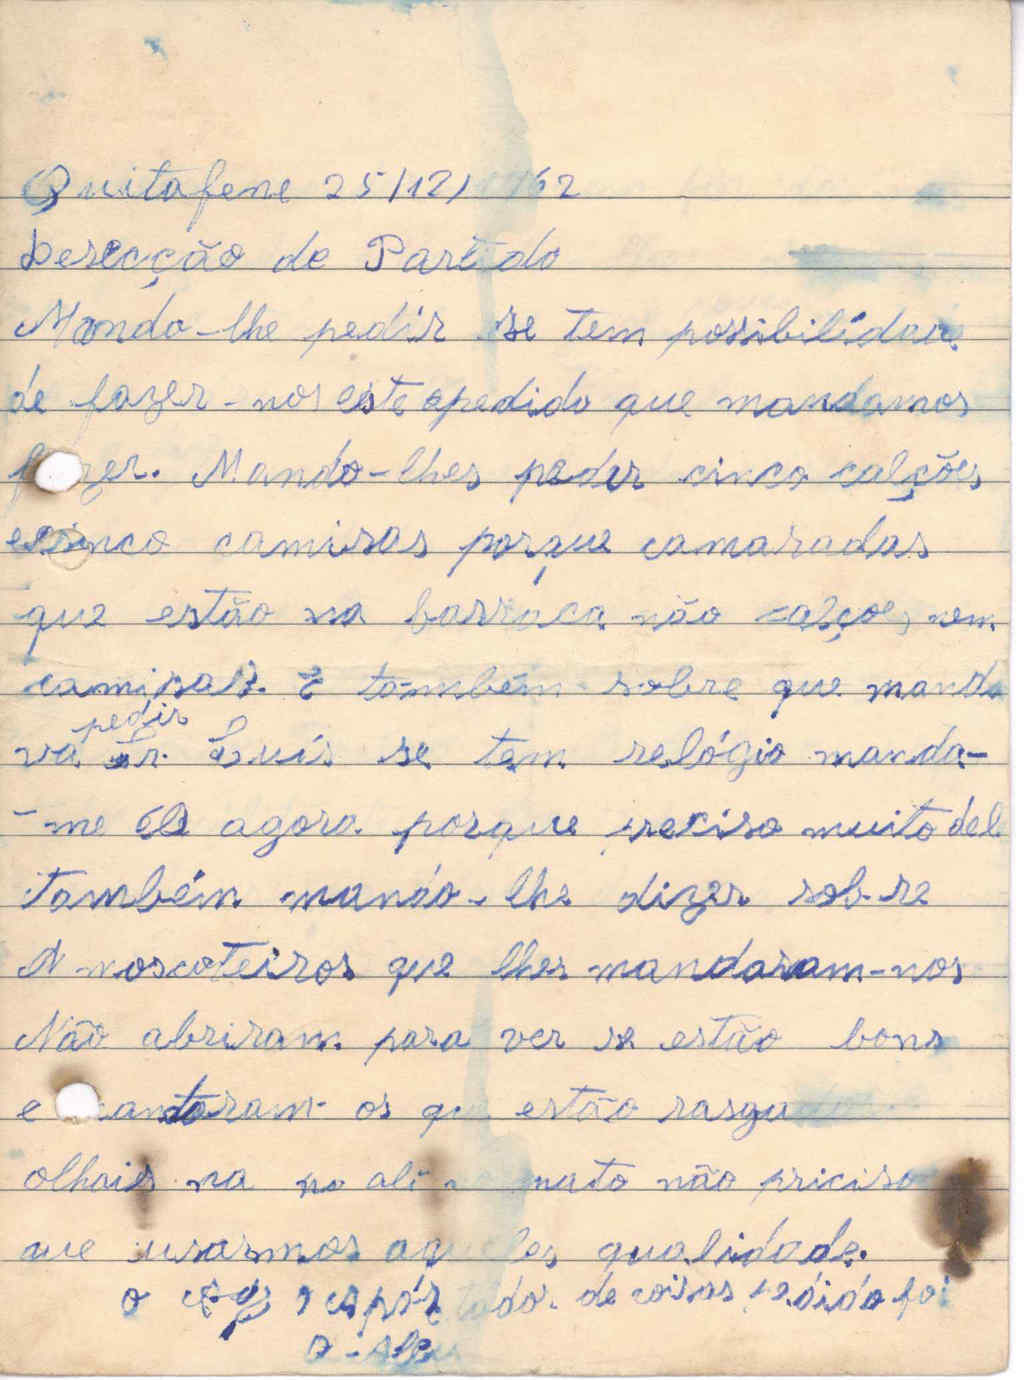 Quitafene 25/12/1962
Derecção de Partido
Mando-lhe pedir se tem possibilidade
de fazer-nos este pedido que mandamos
fazer. Mando-lhes peder cinco calções
e cinco camisas porque camaradas
que estão na barraca não calções nem
camisas. E também sobre que manda
pedir
va Sr. Luís se tem relógio manda-
-me agora porque preciso muito del
também mando-lhe dizer sob-re
A moscoteiros que lhes mandaram-nos
Não abriram para ver se estão bons
e mandaram os que estão rasga
olhais na no ali mato não priciso
que usarmos aqueles qualidade.
o de coisas pedido foi